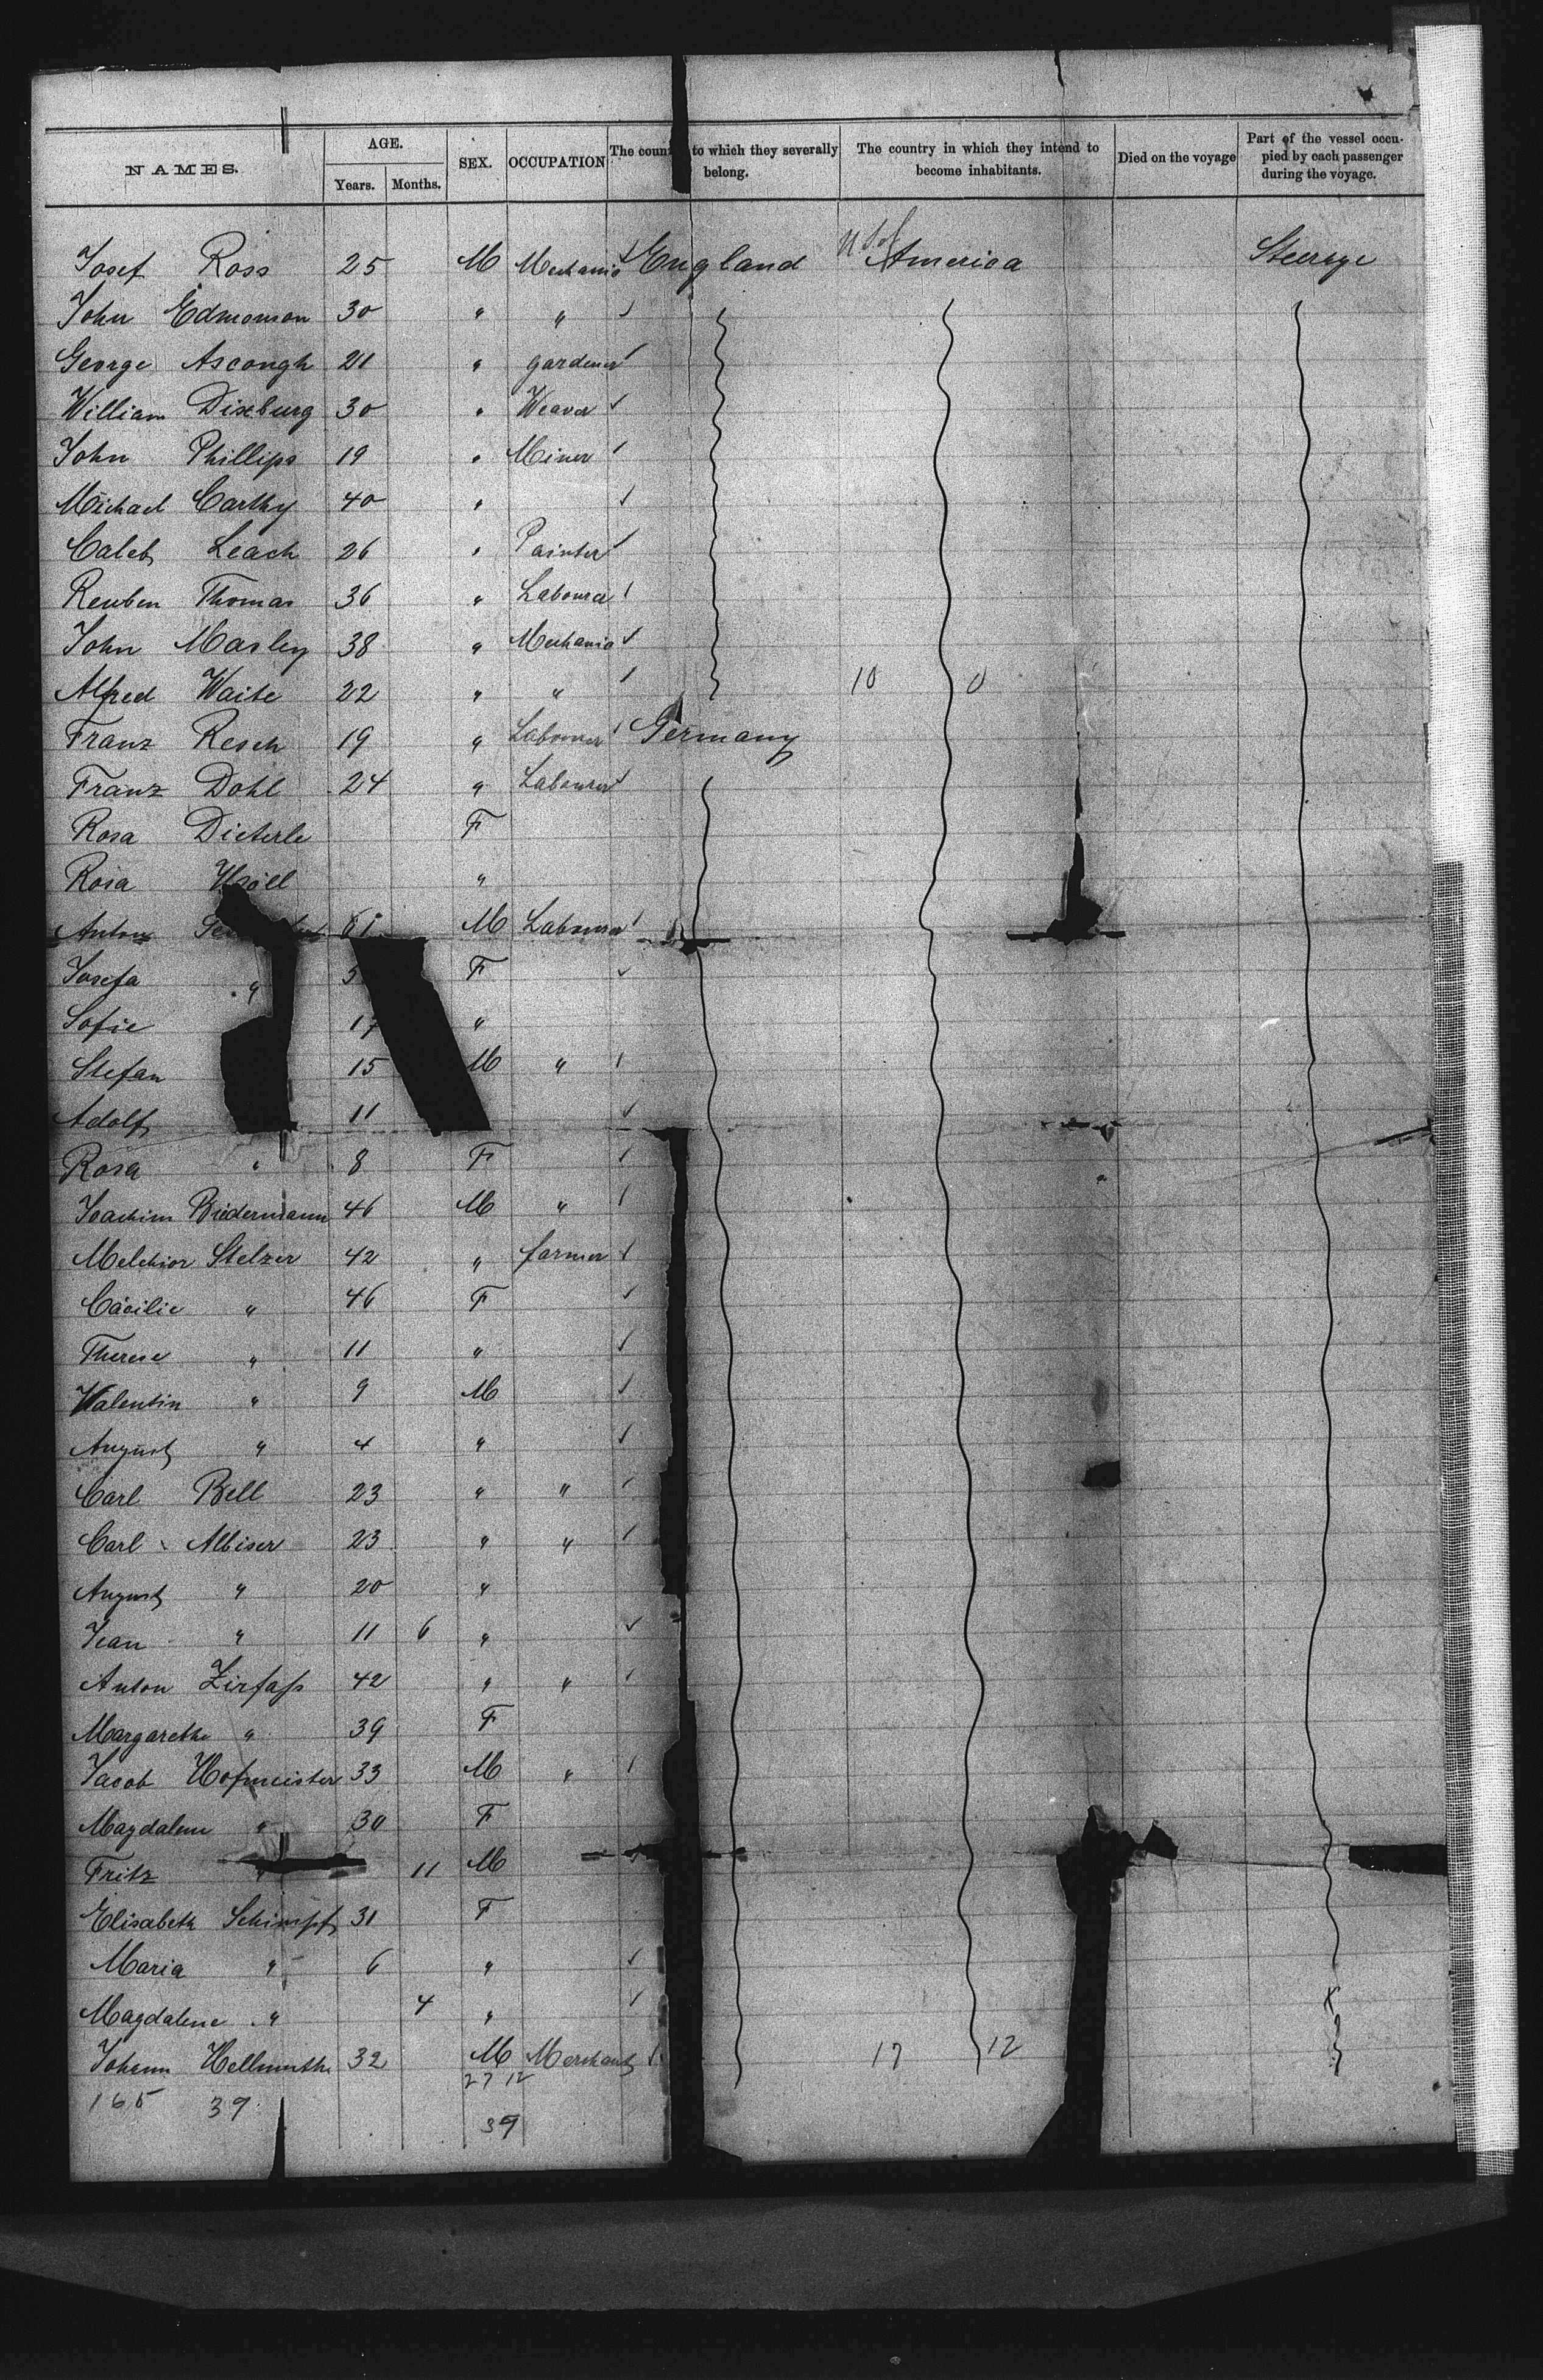 NAMES. AGE. Years. Months. SEX. OCCUPATION The country to which they severally belong. The country in which they intend to become inhabitants. Died on the voyage Part of the vessel occupied by each passenger during the voyage.
Josef Ross 25 M Mechanic ✓ England U S of America Steerage
John Edmonson 30 " " ✓
George Ascough 21 " gardener ✓
William Dixburg 30 " Weaver ✓
John Phillips 19 " Miner ✓
Michael Carthy 40 " ✓
Caleb Leach 26 " Painter ✓
Reuben Thomas 36 " Labourer ✓
John Masley 38 " Mechanic ✓
Alfred Waite 22 " " ✓ 10 0
Franz Resch 19 " Labourer ✓ Germany
Franz Dohl 24 " Labourer ✓
Rosa Dieterle F
Rosa "
Anton 61 M Labourer ✓
Josefa " 5 F ✓
Sofie 17 "
Stefan 15 M " ✓
Adolf 11 ✓
Rosa " 8 F ✓
Joachim Biedermann 46 M " ✓
Melchior Stelzer 42 " farmer ✓
Cäcilie " 46 F ✓
Therese " 11 " ✓
Valentin " 9 M ✓
August " 4 " ✓
Carl Bell 23 " " ✓
Carl Albiser 23 " " ✓
August " 20 "
Jean " 11 6 " ✓
Anton Zirfass 42 " " ✓
Margarethe " 39 F
Jacob Hofmeister 33 M " ✓
Magdalene " 30 F
Fritz " 11 M
Elisabeth Schimpf 31 F
Maria " 6 " ✓
Magdalene " 4 " ✓ x
Johann Hellmuth 32 M Merchant ✓ 17 12
165 39 27 12
39